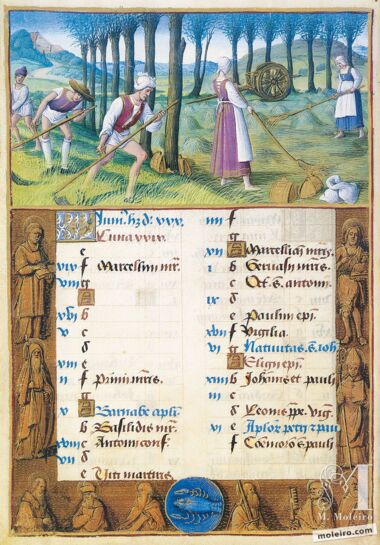 Juni9 hz d. xxx.
Luna xxix.
e
xix f Marcellini mr.
viii g
A
xvi b
v c
d
xiii e
ii f Primi mris.
g
x A Barnabe apli
b Basilidis mris
xviii c Antonii conf.
vii d
e Viti martiris
iiii f
g
xii A Marcelliani mris.
i b Gervasii mris.
c Oct. s. antoni.
ix d
e Paulini epi
xvii f Vigilia
vi g Nativitas s. ioh
A Eligii epi.
xiiii b Johannis et pauli
iii c
d Leonis ppe. vig.
xi e Aplor petri z pau
f Comemo s pauli
M
M. Moleiro
moleiro.com